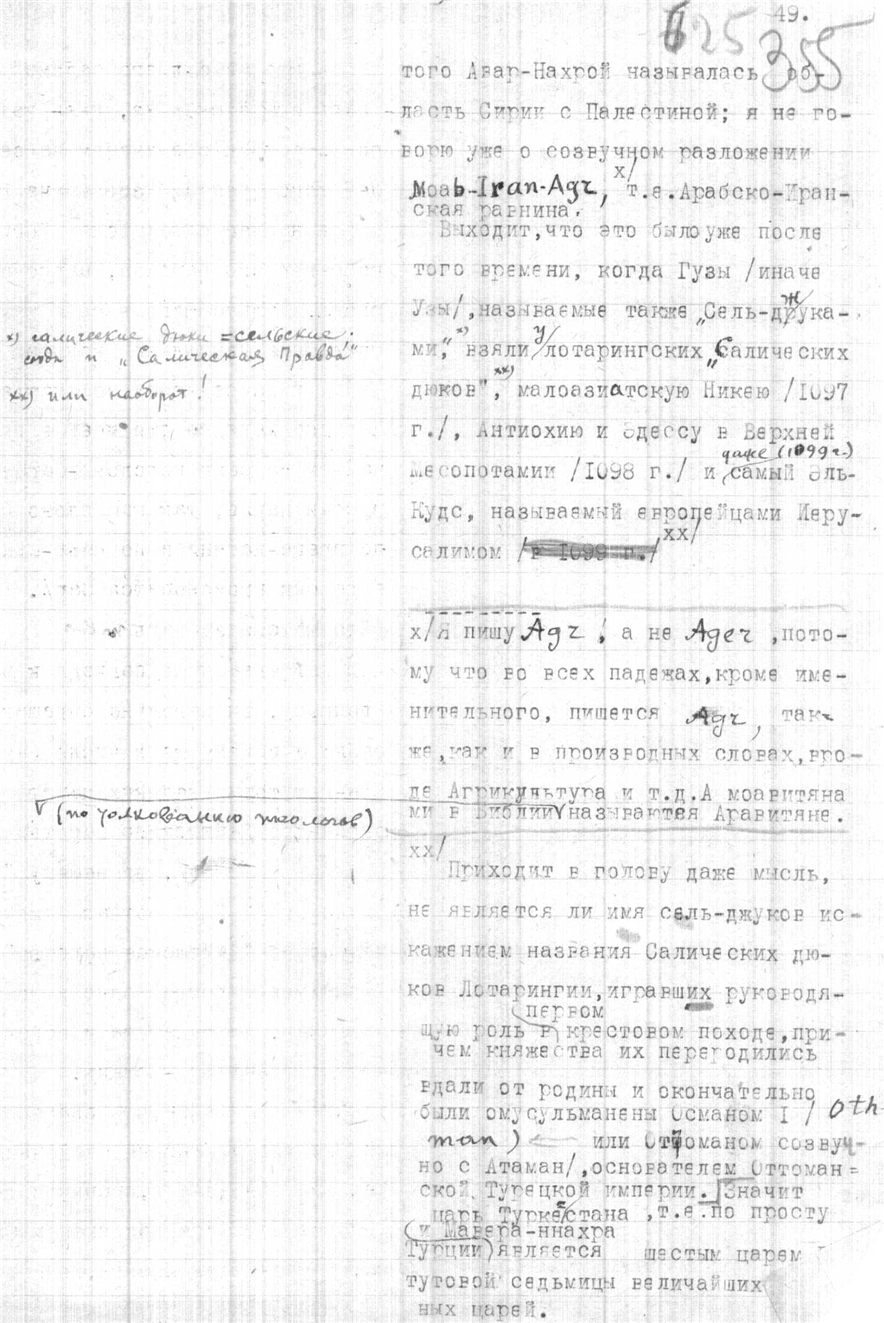 49.
125
355
того Авар-Нахрой называлась об-
ласть Сирии с Палестиной; я не го-
ворю уже о созвучном разложении
Моаb-Iran-Agr, х/ т.е.Арабско-Иран-
ская равнина.
Выходит,что это было уже после
того времени, когда Гузы /иначе
Узы/,называемые также „Сель-джука-
ми," х) взяли у лотарингских „Салических
дюков", хх) малоазиатскую Никею /1097
г./, Антиохию и Эдессу в Верхней
Месопотамии /1098 г./ и даже (1099 г.) самый Эль-
Кудс, называемый европейцами Иеру-
салимом /в 1099 г./ хх/
х) салические дюки = сельские;
и „Салическая Правда"
хх) или наоборот!
х/Я пишу Agr, а не Ager ,пото-
му что во всех падежах,кроме име-
нительного, пишется Agr, так-
же,как и в производных словах,вро-
де Агрикультура и т.д.А моавитяна
ми в Библии называются Аравитяне.
(по толкованию теологов)
хх/
Приходит в голову даже мысль,
не является ли имя сель-джуков ис-
кажением названия Салических дю-
ков Лотарингии,игравших руководя-
первом
щую роль в крестовом походе,при-
чем княжества их переродились
вдали от родины и окончательно
были омусульманены Османом I / Oth
man) или Оттоманом созвуч-
но с Атаман/,основателем Оттоман-
ской Турецкой империи. Значит
царь Туркестана ,т.е.по просту
и Мавера-ннахра
Турции является шестым царем
тутовой седьмицы величайших
ных царей.